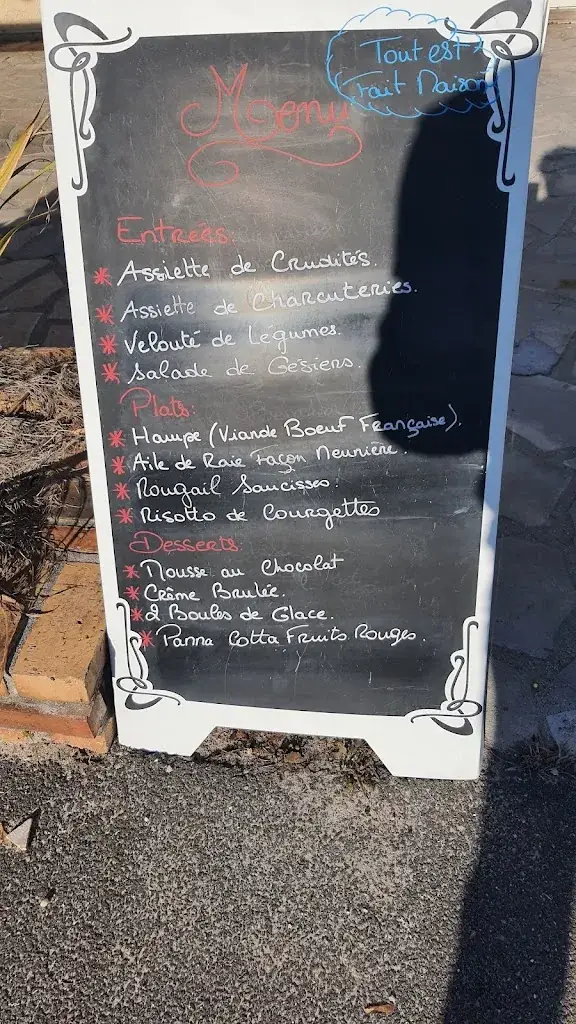 Tout est
Fait Maison
Menu
Entrées.
Assiette de Crudités.
Assiette de Charcuteries.
Velouté de Légumes.
Salade de Gésiers.
Plats:
Hampe (Viande Boeuf Française).
Aile de Raie Façon Meunière.
Rougail Saucisses.
Risotto de Courgettes
Desserts.
Mousse au Chocolat
Crême Brulée.
2 Boules de Glace.
Panna Cotta Fruits Rouges.